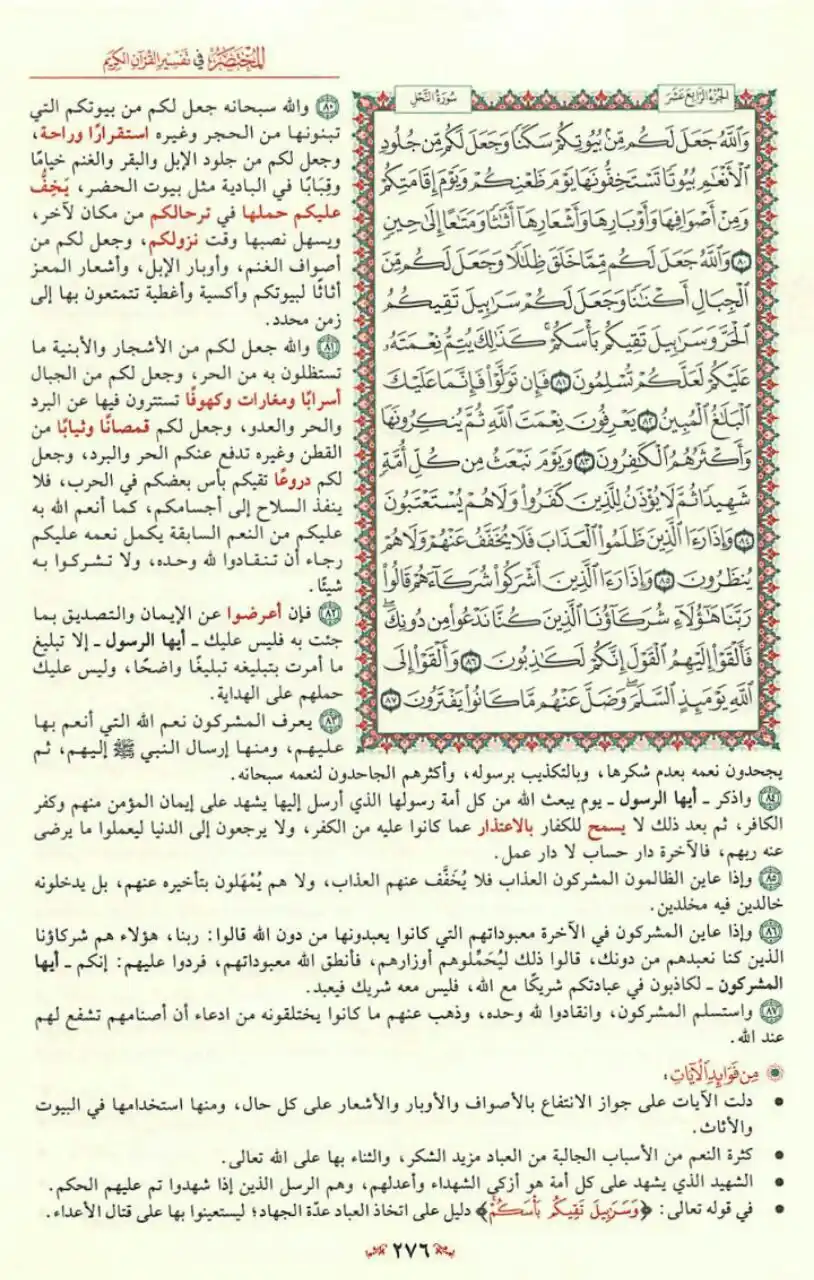 المختصر في تفسير القرآن الكريم
الجزء الرابع عشر
سورة النحل
وَاللَّهُ جَعَلَ لَكُم مِّنۢ بُيُوتِكُمْ سَكَنًا وَجَعَلَ لَكُم مِّن جُلُودِ
الْأَنْعَامِ بُيُوتًا تَسْتَخِفُّونَهَا يَوْمَ ظَعْنِكُمْ وَيَوْمَ إِقَامَتِكُمْ
وَمِنْ أَصْوَافِهَا وَأَوْبَارِهَا وَأَشْعَارِهَا أَثَاثًا وَمَتَاعًا إِلَىٰ حِينٍ
٨٠ وَاللَّهُ جَعَلَ لَكُم مِّمَّا خَلَقَ ظِلَالًا وَجَعَلَ لَكُم مِّنَ
الْجِبَالِ أَكْنَانًا وَجَعَلَ لَكُمْ سَرَابِيلَ تَقِيكُمُ
الْحَرَّ وَسَرَابِيلَ تَقِيكُم بَأْسَكُمْ ۚ كَذَٰلِكَ يُتِمُّ نِعْمَتَهُ
عَلَيْكُمْ لَعَلَّكُمْ تُسْلِمُونَ ٨١ فَإِن تَوَلَّوْا فَإِنَّمَا عَلَيْكَ
الْبَلَاغُ الْمُبِينُ ٨٢ يَعْرِفُونَ نِعْمَتَ اللَّهِ ثُمَّ يُنكِرُونَهَا
وَأَكْثَرُهُمُ الْكَافِرُونَ ٨٣ وَيَوْمَ نَبْعَثُ مِن كُلِّ أُمَّةٍ
شَهِيدًا ثُمَّ لَا يُؤْذَنُ لِلَّذِينَ كَفَرُوا وَلَا هُمْ يُسْتَعْتَبُونَ
٨٤ وَإِذَا رَءَا الَّذِينَ ظَلَمُوا الْعَذَابَ فَلَا يُخَفَّفُ عَنْهُمْ وَلَا هُمْ
يُنظَرُونَ ٨٥ وَإِذَا رَءَا الَّذِينَ أَشْرَكُوا شُرَكَاءَهُمْ قَالُوا
رَبَّنَا هَٰؤُلَاءِ شُرَكَاؤُنَا الَّذِينَ كُنَّا نَدْعُوا مِن دُونِكَ ۖ
فَأَلْقَوْا إِلَيْهِمُ الْقَوْلَ إِنَّكُمْ لَكَاذِبُونَ ٨٦ وَأَلْقَوْا إِلَى
اللَّهِ يَوْمَئِذٍ السَّلَمَ ۖ وَضَلَّ عَنْهُم مَّا كَانُوا يَفْتَرُونَ ٨٧
٨٠ والله سبحانه جعل لكم من بيوتكم التي
تبنونها من الحجر وغيره استقرارًا وراحة،
وجعل لكم من جلود الإبل والبقر والغنم خيامًا
وقِبَابًا في البادية مثل بيوت الحضر، يَخِفُّ
عليكم حملها في ترحالكم من مكان لآخر،
ويسهل نصبها وقت نزولكم، وجعل لكم من
أصواف الغنم، وأوبار الإبل، وأشعار المعز
أثاثًا لبيوتكم وأكسية وأغطية تتمتعون بها إلى
زمن محدد.
٨١ والله جعل لكم من الأشجار والأبنية ما
تستظلون به من الحر، وجعل لكم من الجبال
أسرابًا ومغارات وكهوفًا تستترون فيها عن البرد
والحر والعدو، وجعل لكم قمصانًا وثيابًا من
القطن وغيره تدفع عنكم الحر والبرد، وجعل
لكم دروعًا تقيكم بأس بعضكم في الحرب، فلا
ينفذ السلاح إلى أجسامكم، كما أنعم الله به
عليكم من النعم السابقة يكمل نعمه عليكم
رجاء أن تنقادوا لله وحده، ولا تشركوا به
شيئًا.
٨٢ فإن أعرضوا عن الإيمان والتصديق بما
جئت به فليس عليك ـ أيها الرسول ـ إلا تبليغ
ما أمرت بتبليغه تبليغًا واضحًا، وليس عليك
حملهم على الهداية.
٨٣ يعرف المشركون نعم الله التي أنعم بها
عليهم، ومنها إرسال النبي ﷺ إليهم، ثم
يجحدون نعمه بعدم شكرها، وبالتكذيب برسوله، وأكثرهم الجاحدون لنعمه سبحانه.
٨٤ واذكر ـ أيها الرسول ـ يوم يبعث الله من كل أمة رسولها الذي أرسل إليها يشهد على إيمان المؤمن منهم وكفر
الكافر، ثم بعد ذلك لا يسمح للكفار بالاعتذار عما كانوا عليه من الكفر، ولا يرجعون إلى الدنيا ليعملوا ما يرضى
عنه ربهم، فالآخرة دار حساب لا دار عمل.
٨٥ وإذا عاين الظالمون المشركون العذاب فلا يُخَفَّف عنهم العذاب، ولا هم يُمْهَلون بتأخيره عنهم، بل يدخلونه
خالدين فيه مخلدين.
٨٦ وإذا عاين المشركون في الآخرة معبوداتهم التي كانوا يعبدونها من دون الله قالوا: ربنا، هؤلاء هم شركاؤنا
الذين كنا نعبدهم من دونك، قالوا ذلك ليُحَمِّلوهم أوزارهم، فأنطق الله معبوداتهم، فردوا عليهم: إنكم ـ أيها
المشركون ـ لكاذبون في عبادتكم شريكًا مع الله، فليس معه شريك فيعبد.
٨٧ واستسلم المشركون، وانقادوا لله وحده، وذهب عنهم ما كانوا يختلقونه من ادعاء أن أصنامهم تشفع لهم
عند الله.
من فوائد الآيات:
• دلت الآيات على جواز الانتفاع بالأصواف والأوبار والأشعار على كل حال، ومنها استخدامها في البيوت
والأثاث.
• كثرة النعم من الأسباب الجالبة من العباد مزيد الشكر، والثناء بها على الله تعالى.
• الشهيد الذي يشهد على كل أمة هو أزكى الشهداء وأعدلهم، وهم الرسل الذين إذا شهدوا تم عليهم الحكم.
• في قوله تعالى: ﴿وَسَرَابِيلَ تَقِيكُم بَأْسَكُمْ﴾ دليل على اتخاذ العباد عدّة الجهاد؛ ليستعينوا بها على قتال الأعداء.
٢٧٦